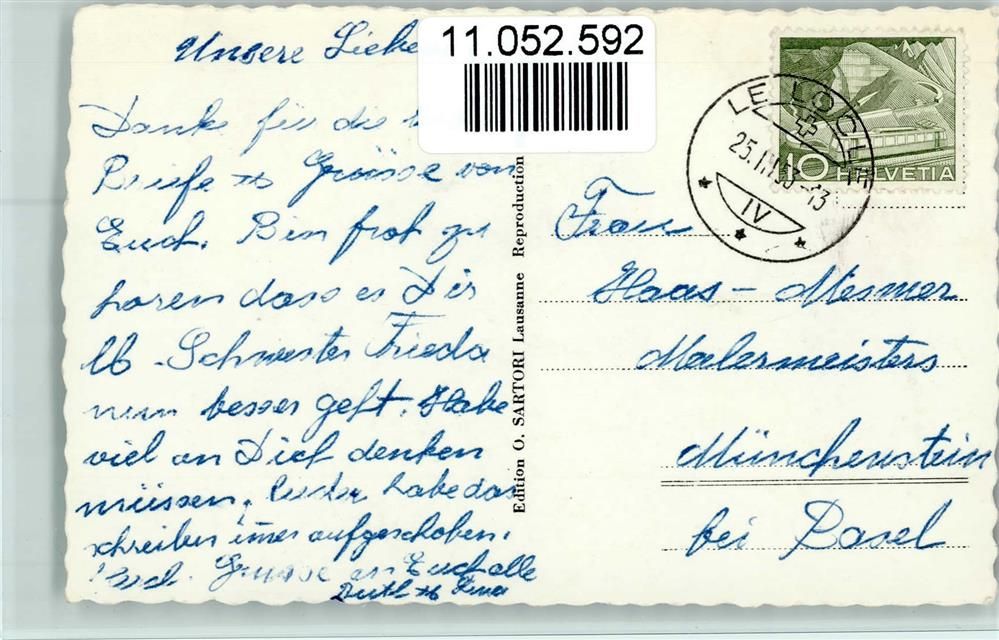 11.052.592
Unsere Liebe
Danke für die
Briefe & Grüsse von
Euch. Bin froh zu
hören dass es Dir
lb. Schwester Frieda
nun besser geht. Habe
viel an Dich denken
müssen, leider habe das
schreiben immer aufgeschoben.
Grüsse an Euch alle
Ruth &
Edition O. SARTORI Lausanne Reproduction
LE LOCLE
IV
10 HELVETIA
Frau
Haas - Mesmer
Malermeisters
Münchenstein
bei Basel